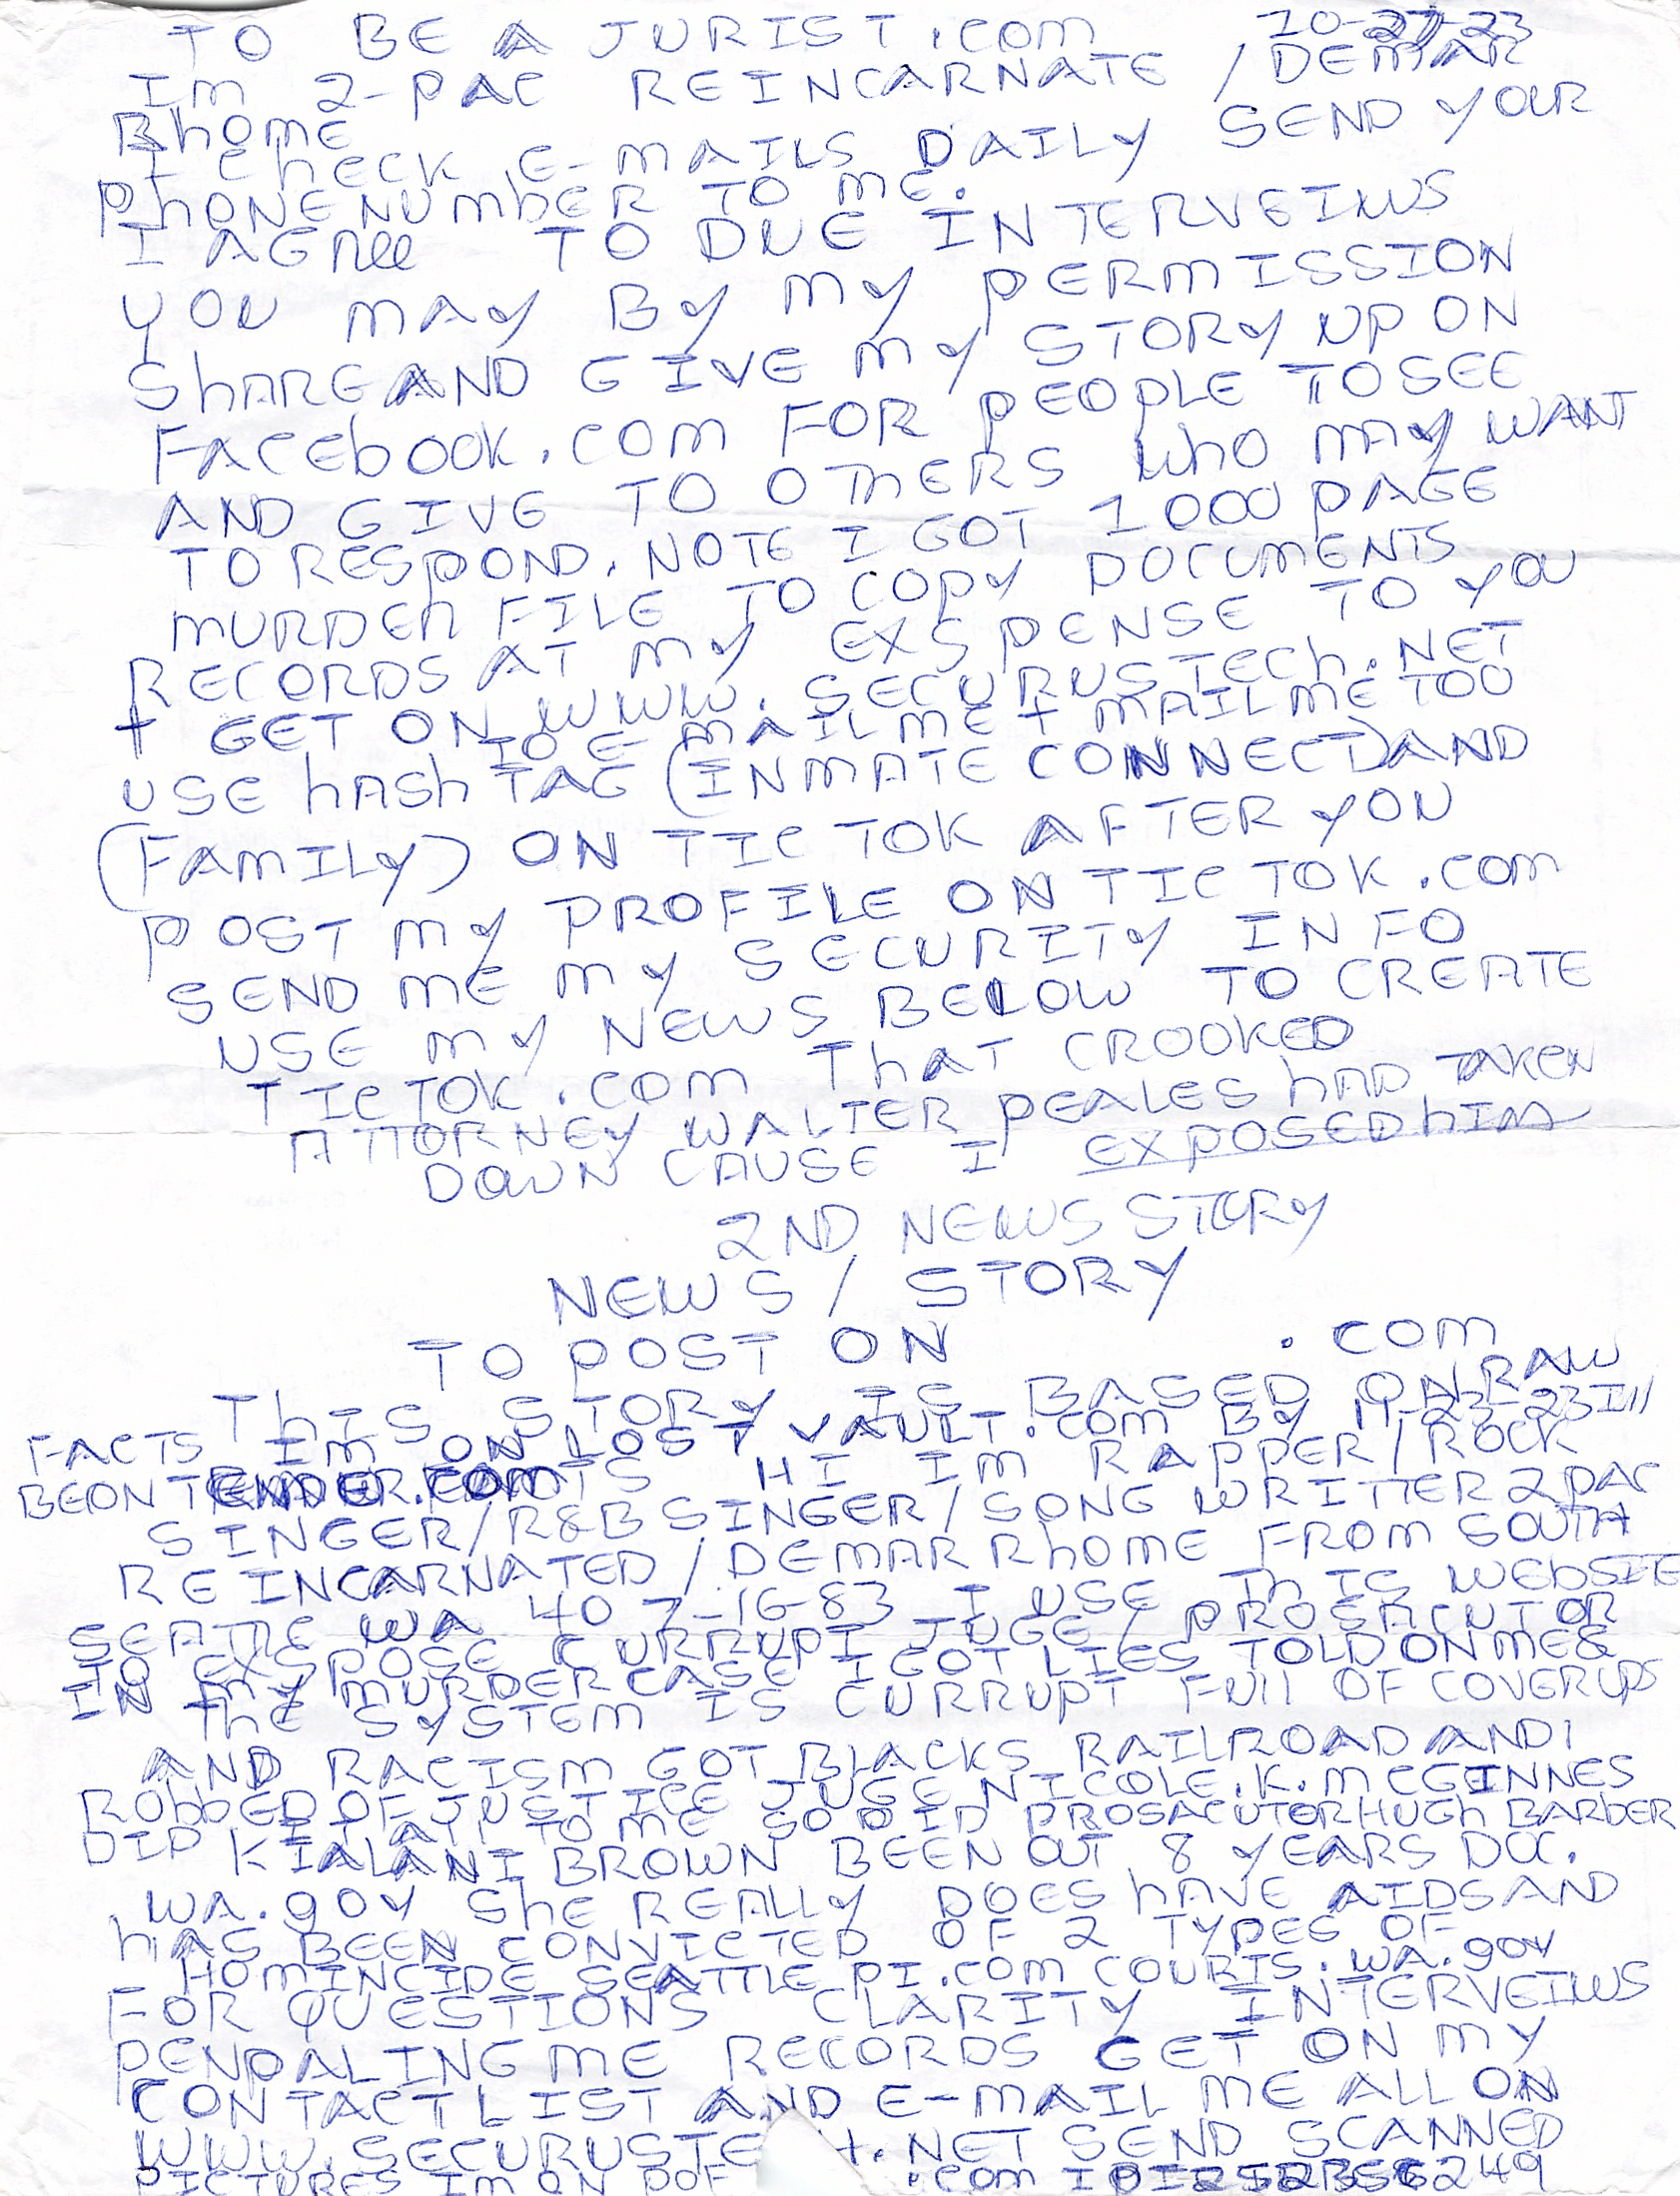 TO BE A JURIST.COM 10-27-23
IM 2-PAC REINCARNATE / DEMAR
RhOME
I ChECK E-MAILS DAILY SEND YOUR
PhONENUMbER TO ME.
I AGREE TO DUE INTERVEIWS
YOU MAY BY MY PERMISSION
ShAREAND GIVE MY STORY UP ON
FACEbOOK.COM FOR PEOPLE TO SEE
AND GIVE TO OThERS WhO MAY WANT
TO RESPOND. NOTE I GOT 1000 PAGE
MURDER FILE TO COPY DOCUMENTS
RECORDS AT MY EXSPENSE TO YOU
+ GET ON WWW.SECURUSTECh.NET
TO E-MAIL ME + MAIL ME TOO
USE hASh TAG (INMATE CONNECT) AND
(FAMILY) ON TIC TOK AFTER YOU
POST MY PROFILE ON TIC TOK.COM
SEND ME MY SECURITY INFO
USE MY NEWS BELOW TO CREATE
TIC TOK.COM ThAT CROOKED
ATTORNEY WALTER PEALES hAD TAKEN
DOWN CAUSE I EXPOSED hIM
2ND NEWS STORY
NEWS / STORY
TO POST ON .COM
ThIS STORY IS BASED ON RAW
FACTS IM ON LOST VAULT.COM BY 11-22-23 Ill
BE ON HI IM RAPPER/ROCK
SINGER/R&B SINGER/SONG WRITTER 2PAC
REINCARNATED / DEMAR RhOME FROM SOUTH
SEATTLE WA 40 7-16-83 I USE ThIS WEBSITE
TO EXSPOSE CURRUPT JUGE / PROSACUTOR
IN MY MURDER CASE I GOT LIES TOLD ON ME &
ThE SYSTEM IS CURRUPT FUll OF COVERUPS
AND RACISM GOT BLACKS RAILROAD AND
RObbED OF JUSTICE JUGE NICOLE.K.MCGINNES
DID IT ALL TO ME SO DID PROSACUTOR HUGh BARBER
KIALANI BROWN BEEN OUT 8 YEARS DOC.
WA.gOV ShE REALLY DOES hAVE AIDS AND
hAS BEEN CONVICTED OF 2 TYPES OF
HOMINCIDE SEATTLE PI.COM COURTS.WA.gOV
FOR QUESTIONS CLARITY INTERVEIWS
PENPALING ME RECORDS GET ON MY
CONTACT LIST AND E-MAIL ME ALL ON
WWW.SECURUSTE H.NET SEND SCANNED
PICTURES IM ON POF .COM